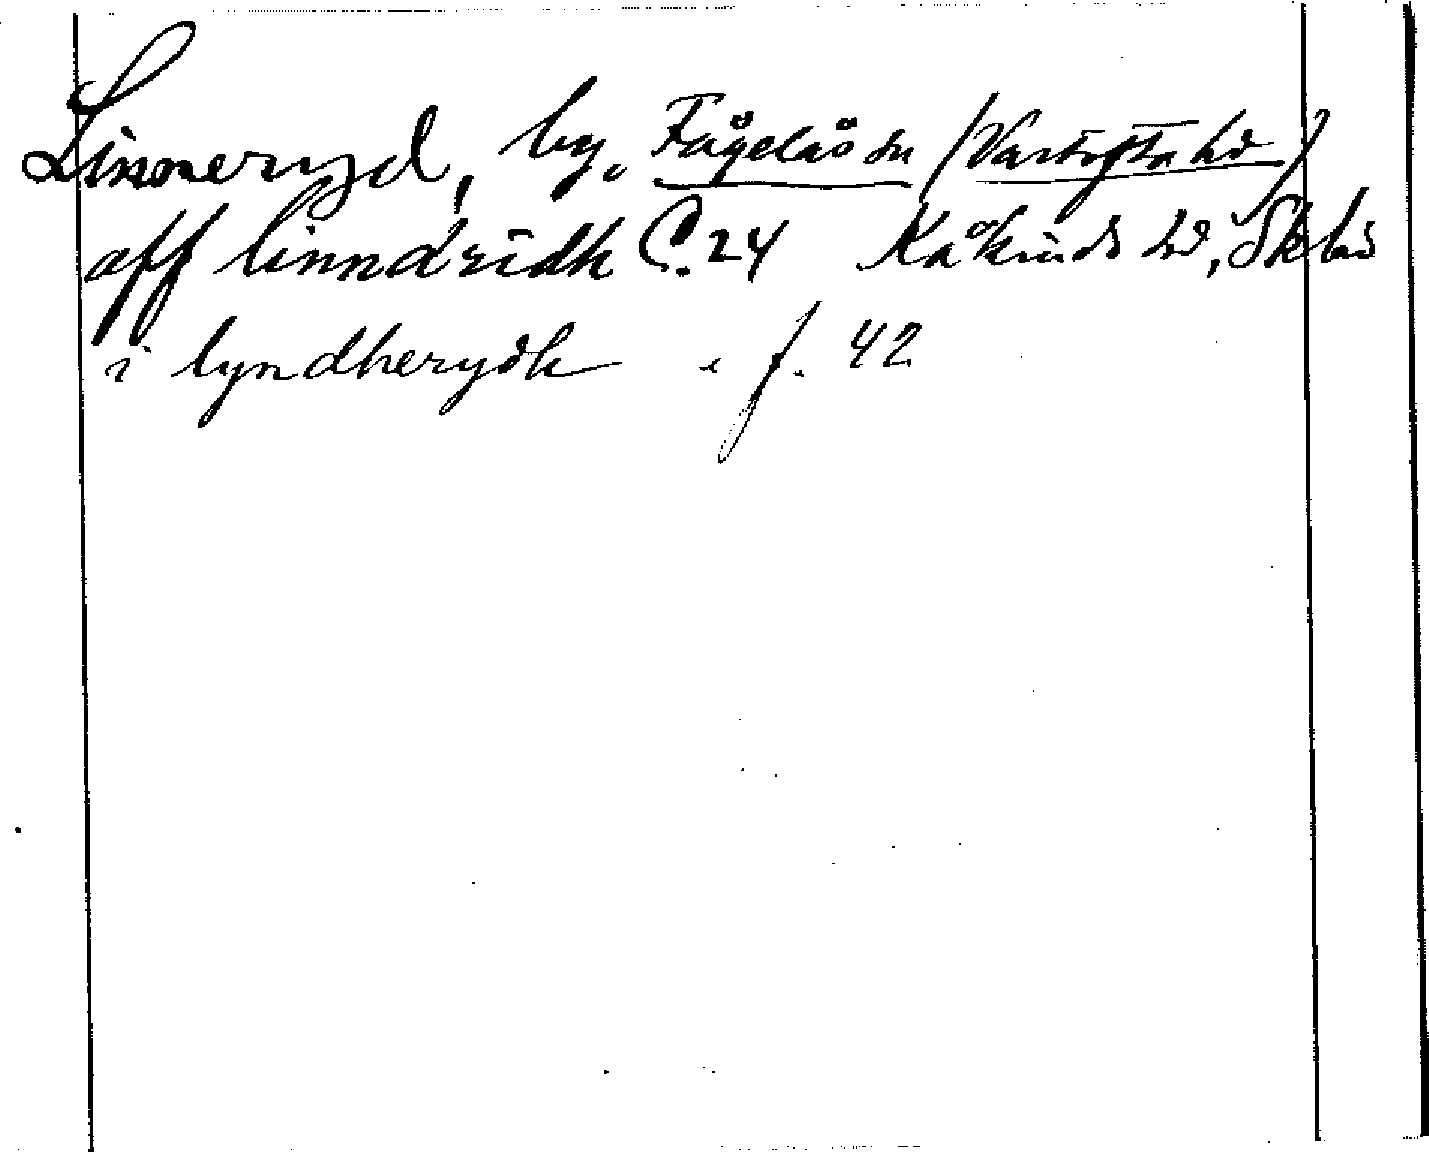 Linneryd, by. Fågelås sn (Vartofta hd)
aff linndridh C. 24 Kåkinds hd, Sk. län
i lyndherydh f. 42